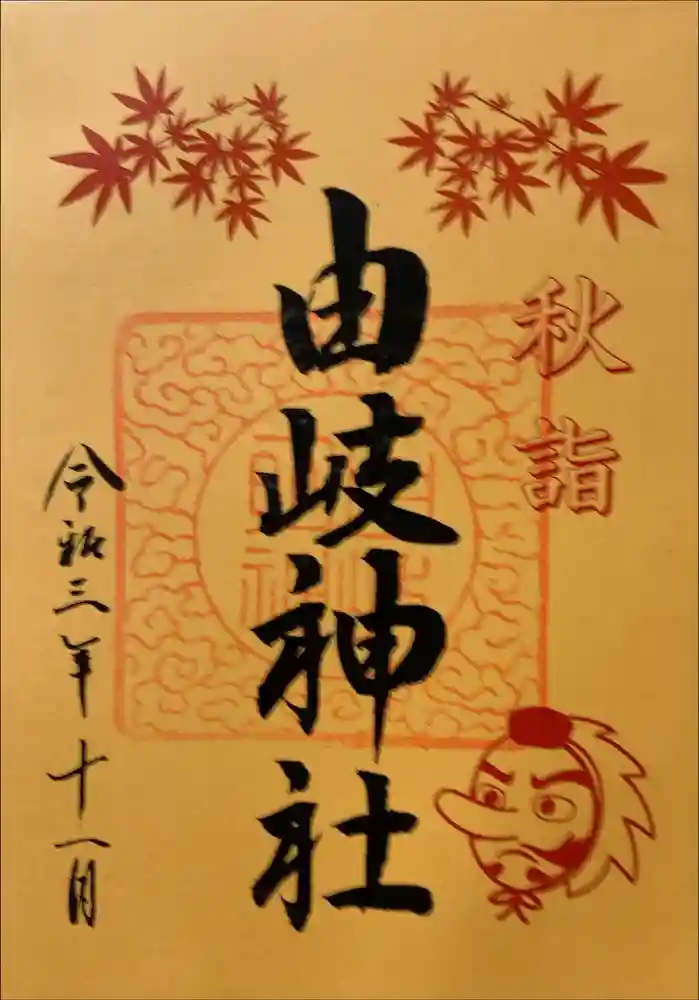 秋詣
由岐神社
令和三年十一月